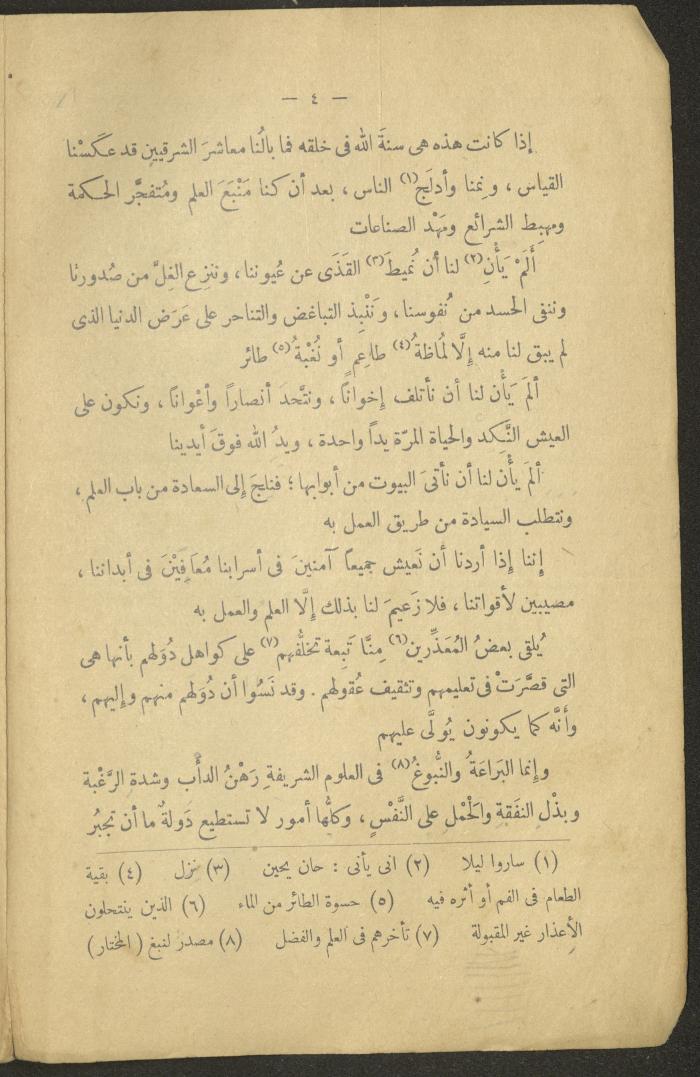 — ٤ —
إذا كانت هذه هى سنةَ الله فى خلقه فما بالُنا معاشرَ الشرقيين قد عكَسْنا
القياس ، ونِمنا وأدلَج(١) الناس ، بعد أن كنا مَنْبَعَ العلم ومُتفجَّر الحكمة
ومهبِط الشرائع ومَهْد الصناعات
أَلَمْ يَأْنِ(٢) لنا أن نُميطَ(٣) القَذَى عن عُيوننا ، وننزِع الغِلَّ من صُدورنا
وننفى الحسد من نُفوسنا ، وَنَنْبِذ التباغض والتناحر على عَرَض الدنيا الذى
لم يبق لنا منه إِلَّا لُمَاظةُ(٤) طاعِم أو نُغْبةُ(٥) طائر
ألَمَ يَأْن لنا أن نأتلف إخواناً ، ونتَّحدَ أنصاراً وأعْواناً ، ونكون على
العيش النَّكِد والحياة المرّة يداً واحدة ، ويدُ الله فوقَ أيدينا
ألَمَ يأْن لنا أن نأتىَ البيوت من أبوابها ؛ فنلجَ إلى السعادة من باب العلم ،
ونتطلب السيادة من طريق العمل به
إننا إذا أردنا أن نَعيش جميعاً آمنينَ فى أسرابنا مُعَافَيْنَ فى أبداننا ،
مصيبين لأقواتنا ، فلا زَعيمَ لنا بذلك إِلَّا العلم والعمل به
يُلقى بعضُ المُعَذِّرين(٦) مِنَّا تَبِعة تخلُّفهم(٧) على كواهل دُوَلهم بأنها هى
التى قصَّرَتْ فى تعليمهم وتثقيف عُقولهم . وقد نَسُوا أن دُوَلهم منهم وإليهم ،
وأنَّه كما يكونون يُولَّى عليهم
وإنما البَراعَةُ والنُّبوغُ(٨) فى العلوم الشريفةِ رَهْنُ الدأَب وشدة الرَّغْبة
وبذْلِ النفَقةِ والحَمْل على النَّفْسِ ، وكلُّها أمور لا تستطيع دَولةٌ ما أن تجبُر
(١) ساروا ليلا (٢) انى يأنى : حان يحين (٣) نزل (٤) بقية
الطعام فى الفم أو أثره فيه (٥) حسوة الطائر من الماء (٦) الذين ينتحلون
الأعذار غير المقبولة (٧) تأخرهم فى العلم والفضل (٨) مصدر لنبغ ( المختار )